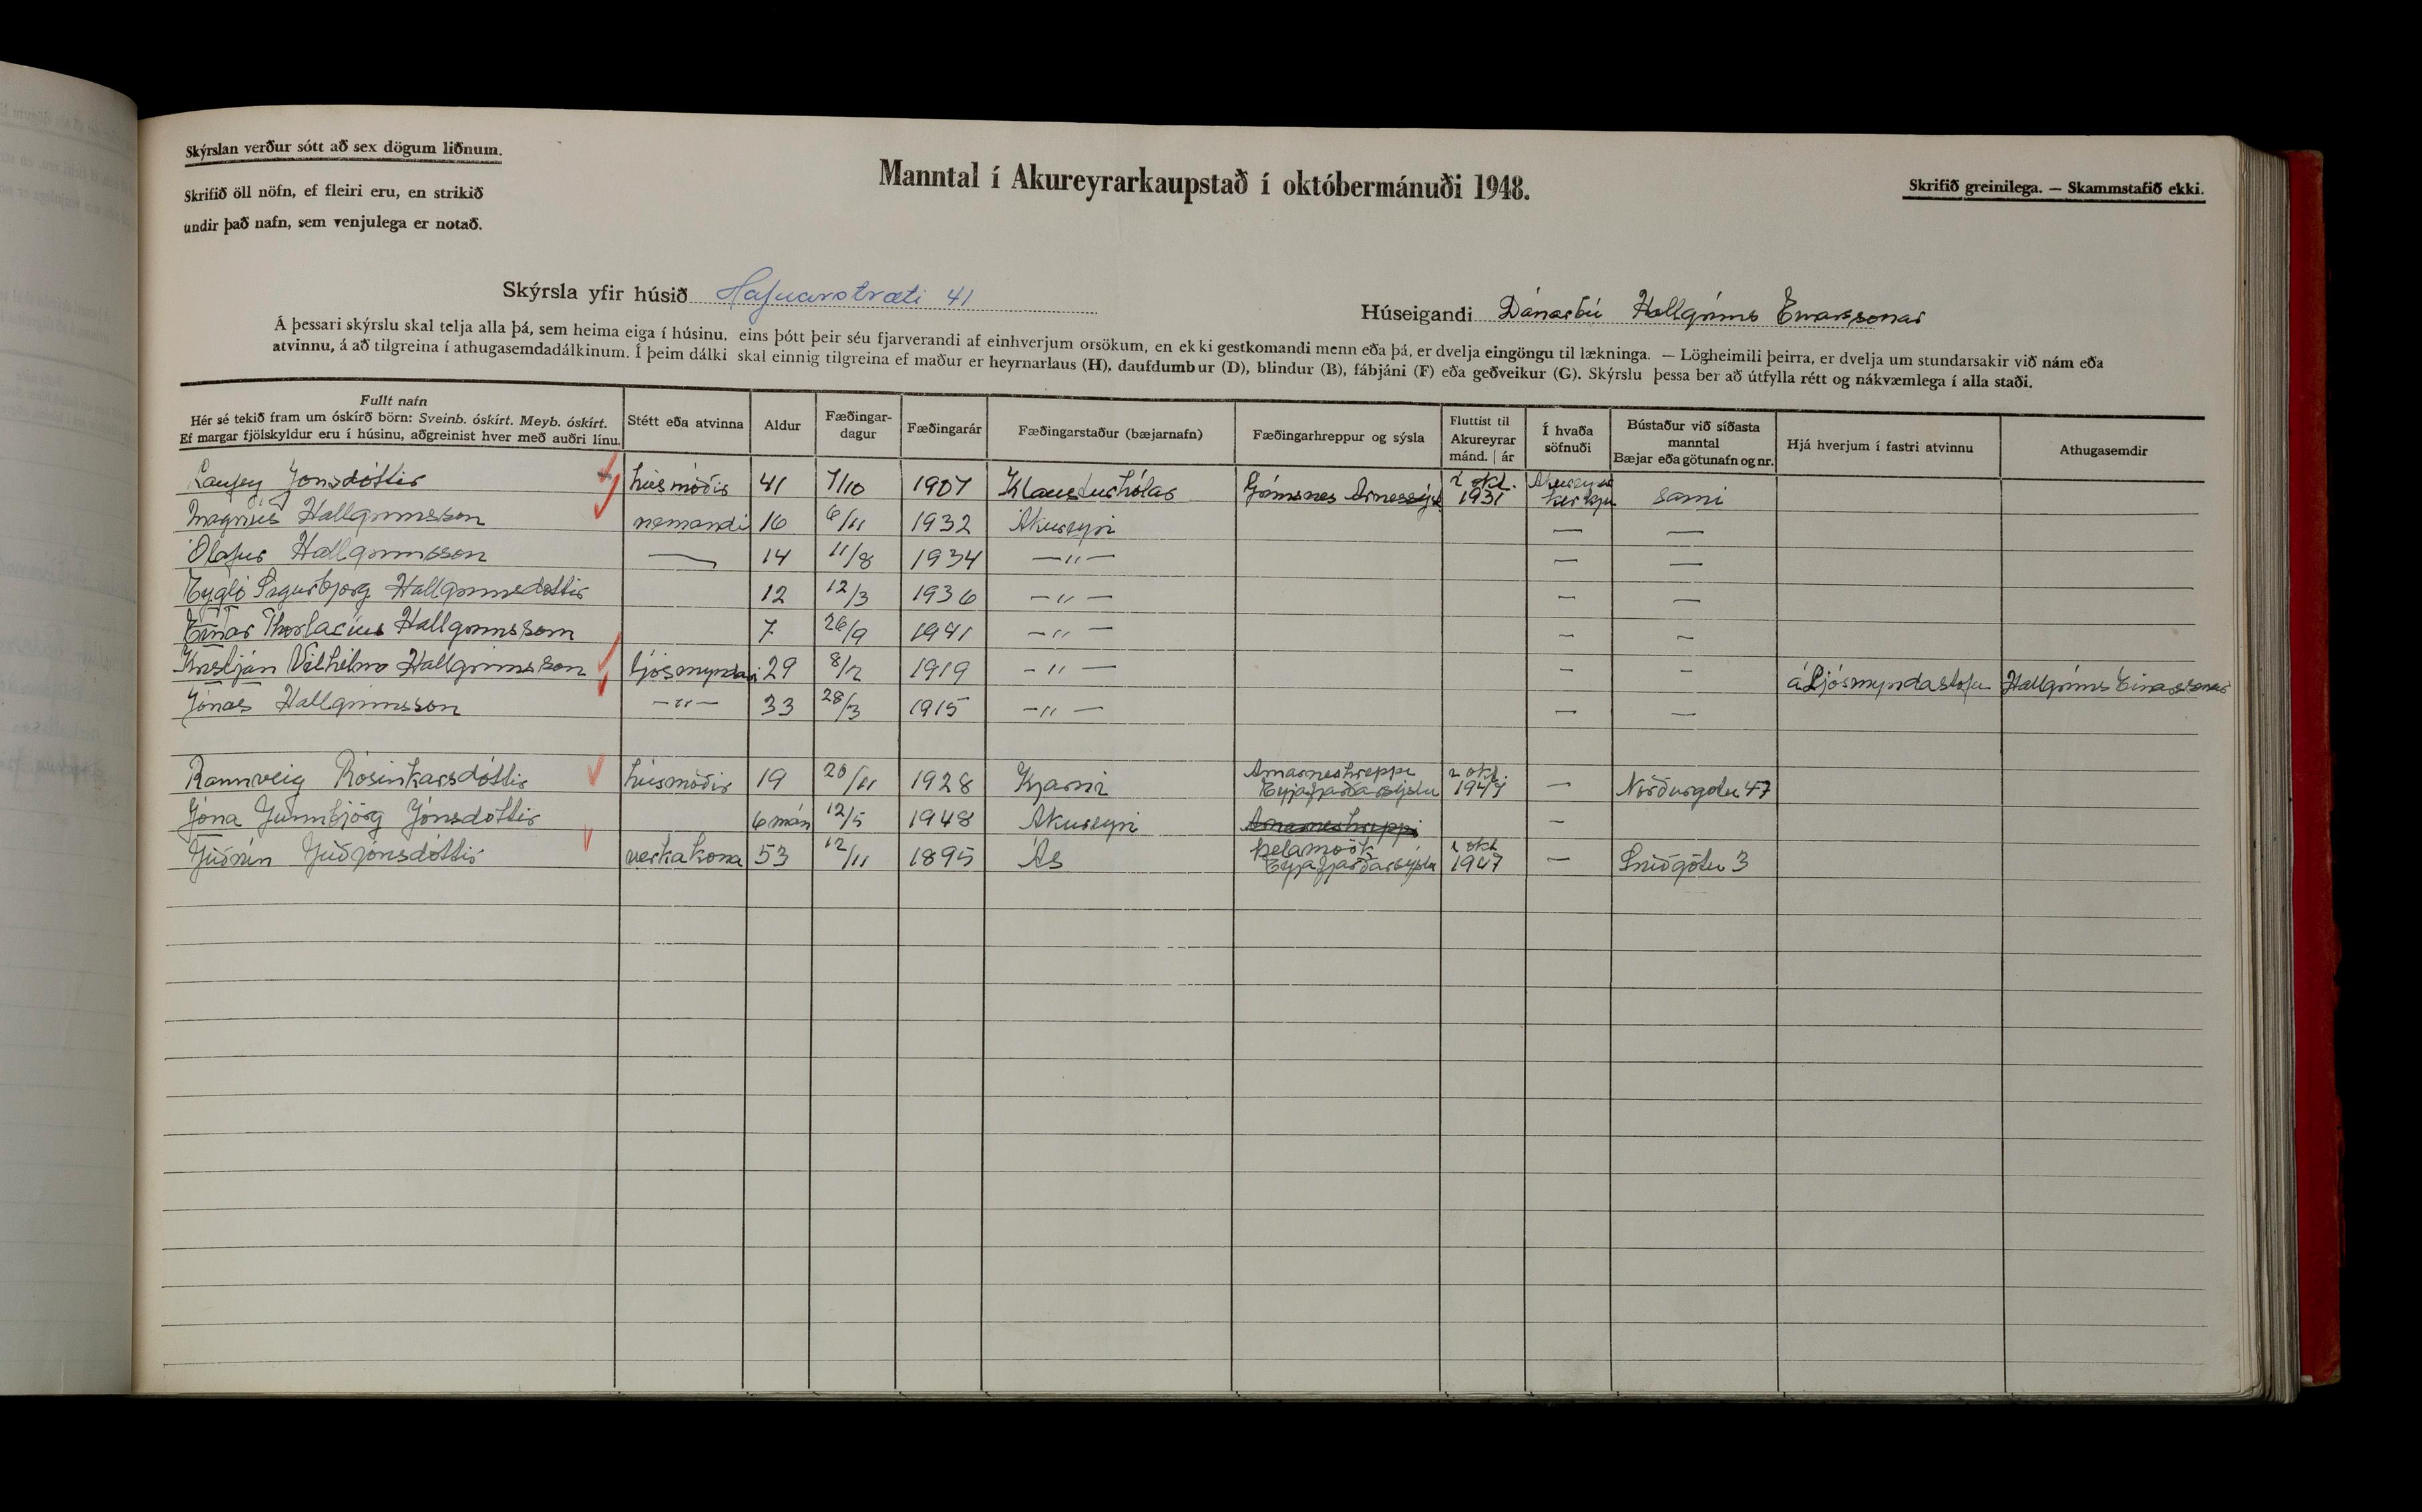 Skýrslan verður sótt að sex dögum liðnum.
Skrifið öll nöfn, ef fleiri eru, en strikið
undir það nafn, sem venjulega er notað.
Manntal í Akureyrarkaupstað í októbermánuði 1948.
Skrifið greinilega. — Skammstafið ekki.
Skýrsla yfir húsið Hafnarstræti 41
Húseigandi Dánarbú Hallgríms Einarssonar
Á þessari skýrslu skal telja alla þá, sem heima eiga í húsinu, eins þótt þeir séu fjarverandi af einhverjum orsökum, en ekki gestkomandi menn eða þá, er dvelja eingöngu til lækninga. — Lögheimili þeirra, er dvelja um stundarsakir við nám eða
atvinnu, á að tilgreina í athugasemdadálkinum. Í þeim dálki skal einnig tilgreina ef maður er heyrnarlaus (H), daufdumbur (D), blindur (B), fábjáni (F) eða geðveikur (G). Skýrslu þessa ber að útfylla rétt og nákvæmlega í alla staði.
Fullt nafn
Hér sé tekið fram um óskírð börn: Sveinb. óskírt. Meyb. óskírt.
Ef margar fjölskyldur eru í húsinu, aðgreinist hver með auðri línu.
Stétt eða atvinna
Aldur
Fæðingar-
dagur
Fæðingarár
Fæðingarstaður (bæjarnafn)
Fæðingarhreppur og sýsla
Fluttist til
Akureyrar
mánd. | ár
Í hvaða
söfnuði
Bústaður við síðasta
manntal
Bæjar eða götunafn og nr.
Hjá hverjum í fastri atvinnu
Athugasemdir
Laufey Jónsdóttir húsmóðir 41 7/10 1907 Klausturhólar Grímsnes Árnessýsl í okt. 1931 Akureyrar kirkju sami
Magnús Hallgrímsson nemandi 16 6/11 1932 Akureyri — —
Ólafur Hallgrímsson — 14 11/8 1934 —"— — —
Eygló Sigurbjörg Hallgrímsdóttir 12 12/3 1936 —"— — —
Einar Thorlacius Hallgrímsson 7 26/9 1941 —"— — —
Kristján Vilhelm Hallgrímsson ljósmyndari 29 8/2 1919 —"— — — á Ljósmyndastofu Hallgríms Einarssonar
Jónas Hallgrímsson —"— 33 28/3 1915 —"— — —
Rannveig Rósinkarsdóttir húsmóðir 19 20/11 1928 Kjarni Arnarneshreppi Eyjafjarðarsýslu í okt. 1947 — Norðurgötu 47
Jóna Gunnbjörg Jónsdóttir 6 mán 12/5 1948 Akureyri Arnarneshreppi —
Guðrún Guðjónsdóttir verkakona 53 12/11 1895 Ás Þelamörk Eyjafjarðarsýslu í okt 1947 — Sniðgötu 3